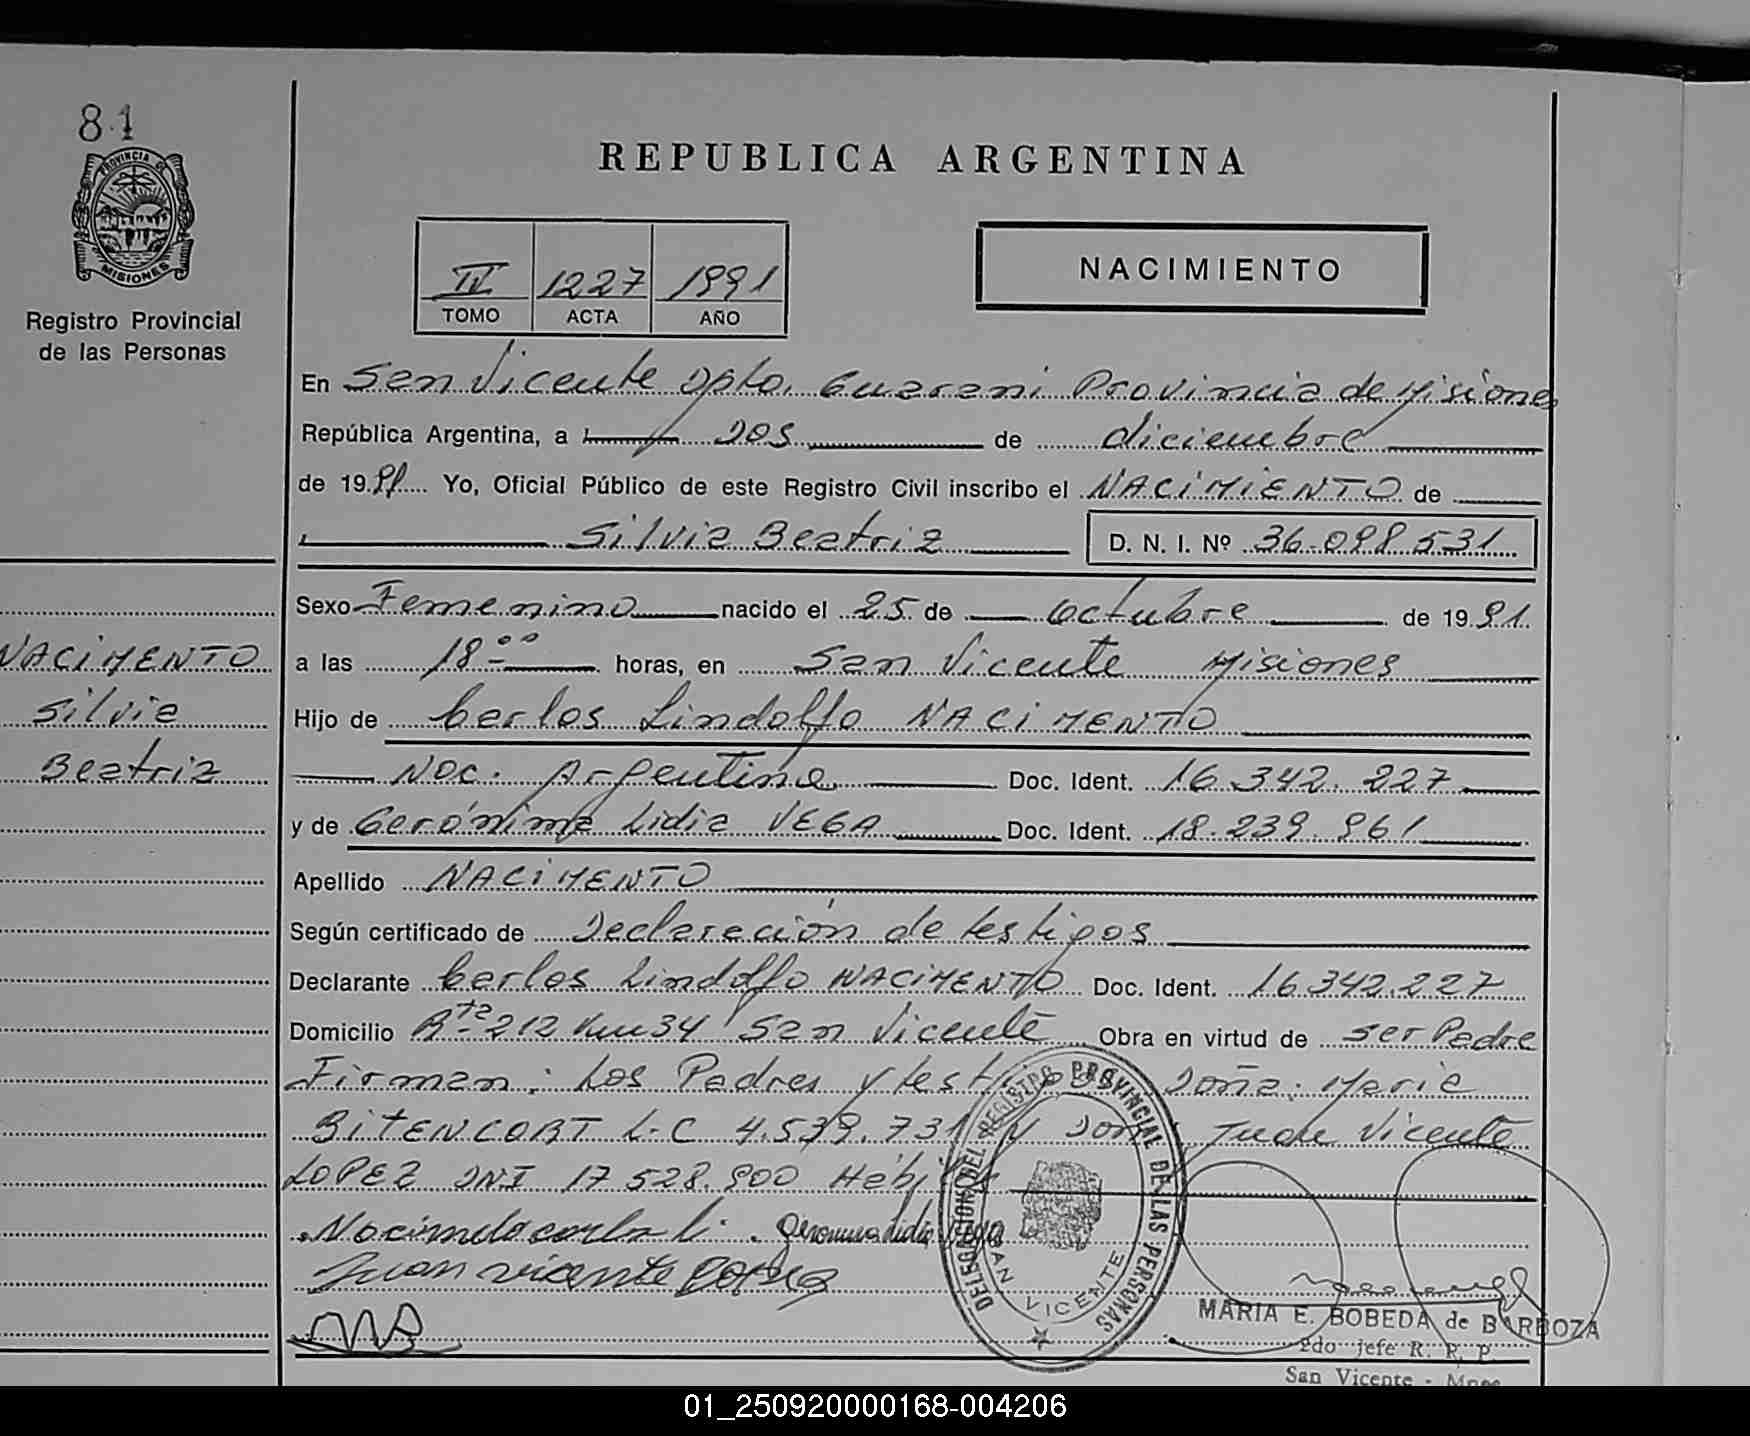 81
PROVINCIA DE
MISIONES
Registro Provincial
de las Personas
NACIMENTO
Silvia
Beatriz
REPUBLICA ARGENTINA
IV 1227 1991
TOMO ACTA AÑO
NACIMIENTO
En San Vicente Dpto. Guarani Provincia de Misiones
República Argentina, a Dos de diciembre
de 1991 Yo, Oficial Público de este Registro Civil inscribo el NACIMIENTO de
Silvia Beatriz D. N. I. Nº 36.098.531
Sexo Femenino nacido el 25 de Octubre de 1991
a las 18 00 horas, en San Vicente Misiones
Hijo de Carlos Lindolfo NACIMENTO
Nac. Argentina Doc. Ident. 16.342.227
y de Gerónima Lidia VEGA Doc. Ident. 18.239.961
Apellido NACIMENTO
Según certificado de Declaración de testigos
Declarante Carlos Lindolfo NACIMENTO Doc. Ident. 16.342.227
Domicilio Rta 212 Km 34 San Vicente Obra en virtud de ser Padre
Firman: Los Padres y testigos Doña: Maria
BITENCORT L.C 4.539.731 y Don Juan Vicente
LOPEZ DNI 17.528.900 Hábiles
Nacimento carlos L. Geronima Lidia Vega
Juan vicente Lopez
MB
DELEGACION DEL REGISTRO PROVINCIAL DE LAS PERSONAS
SAN VICENTE
MARIA E. BOBEDA de BARBOZA
2do Jefe R. P. P.
San Vicente - Mnes
01_250920000168-004206